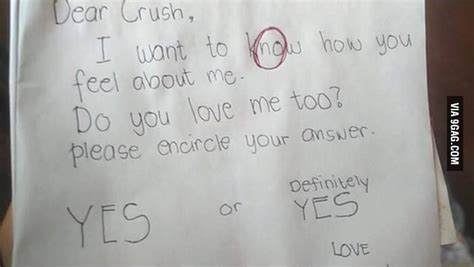 Dear Crush,
I want to know how you
feel about me.
Do you love me too?
please encircle your answer.
YES or Definitely YES
LOVE
VIA 9GAG.COM